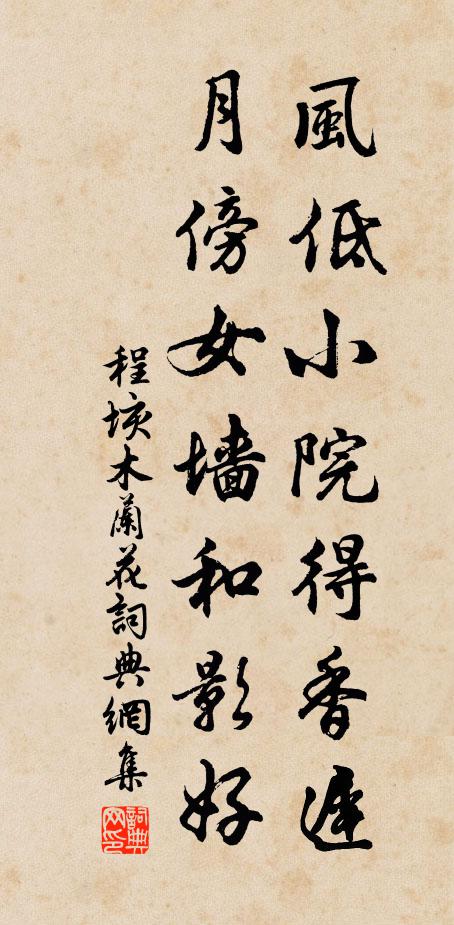 風低小院得香遲
月傍女墙和影好
程垓木蘭花詞典網集
詞典网印